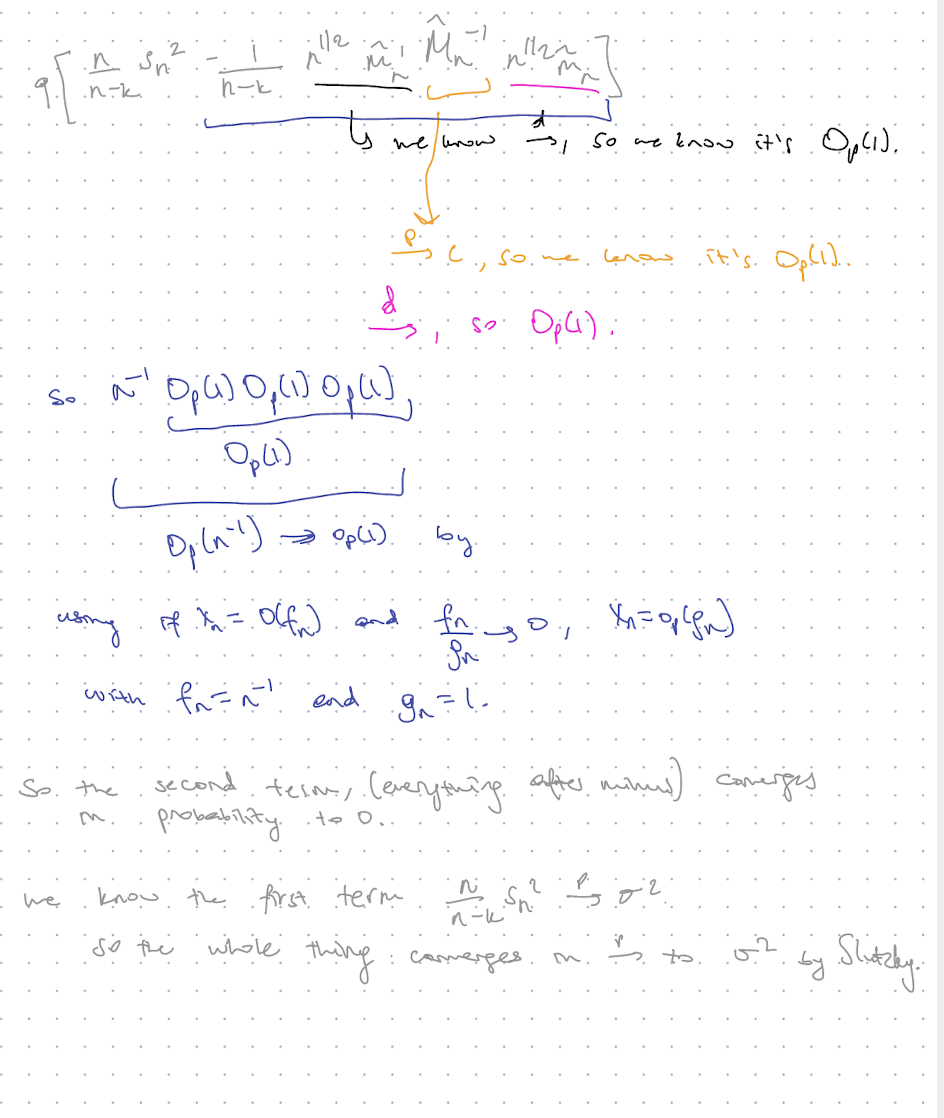 9[ n/(n-k) Sn² - 1/(n-k) n^{1/2} m̃n' M̂n^{-1} n^{1/2} m̃n ]
↳ we know →d, so we know it's Op(1).
→p c, so we know it's Op(1).
→d, so Op(1).
so n^{-1} Op(1) Op(1) Op(1),
Op(1)
Op(n^{-1}) → op(1) by
using if Xn = O(fn) and fn/gn → 0, Xn = op(gn)
with fn = n^{-1} and gn = 1.
So the second term, (everything after minus) converges
in probability to 0.
we know the first term n/(n-k) Sn² →p σ².
so the whole thing converges in →p to σ² by Slutzky.